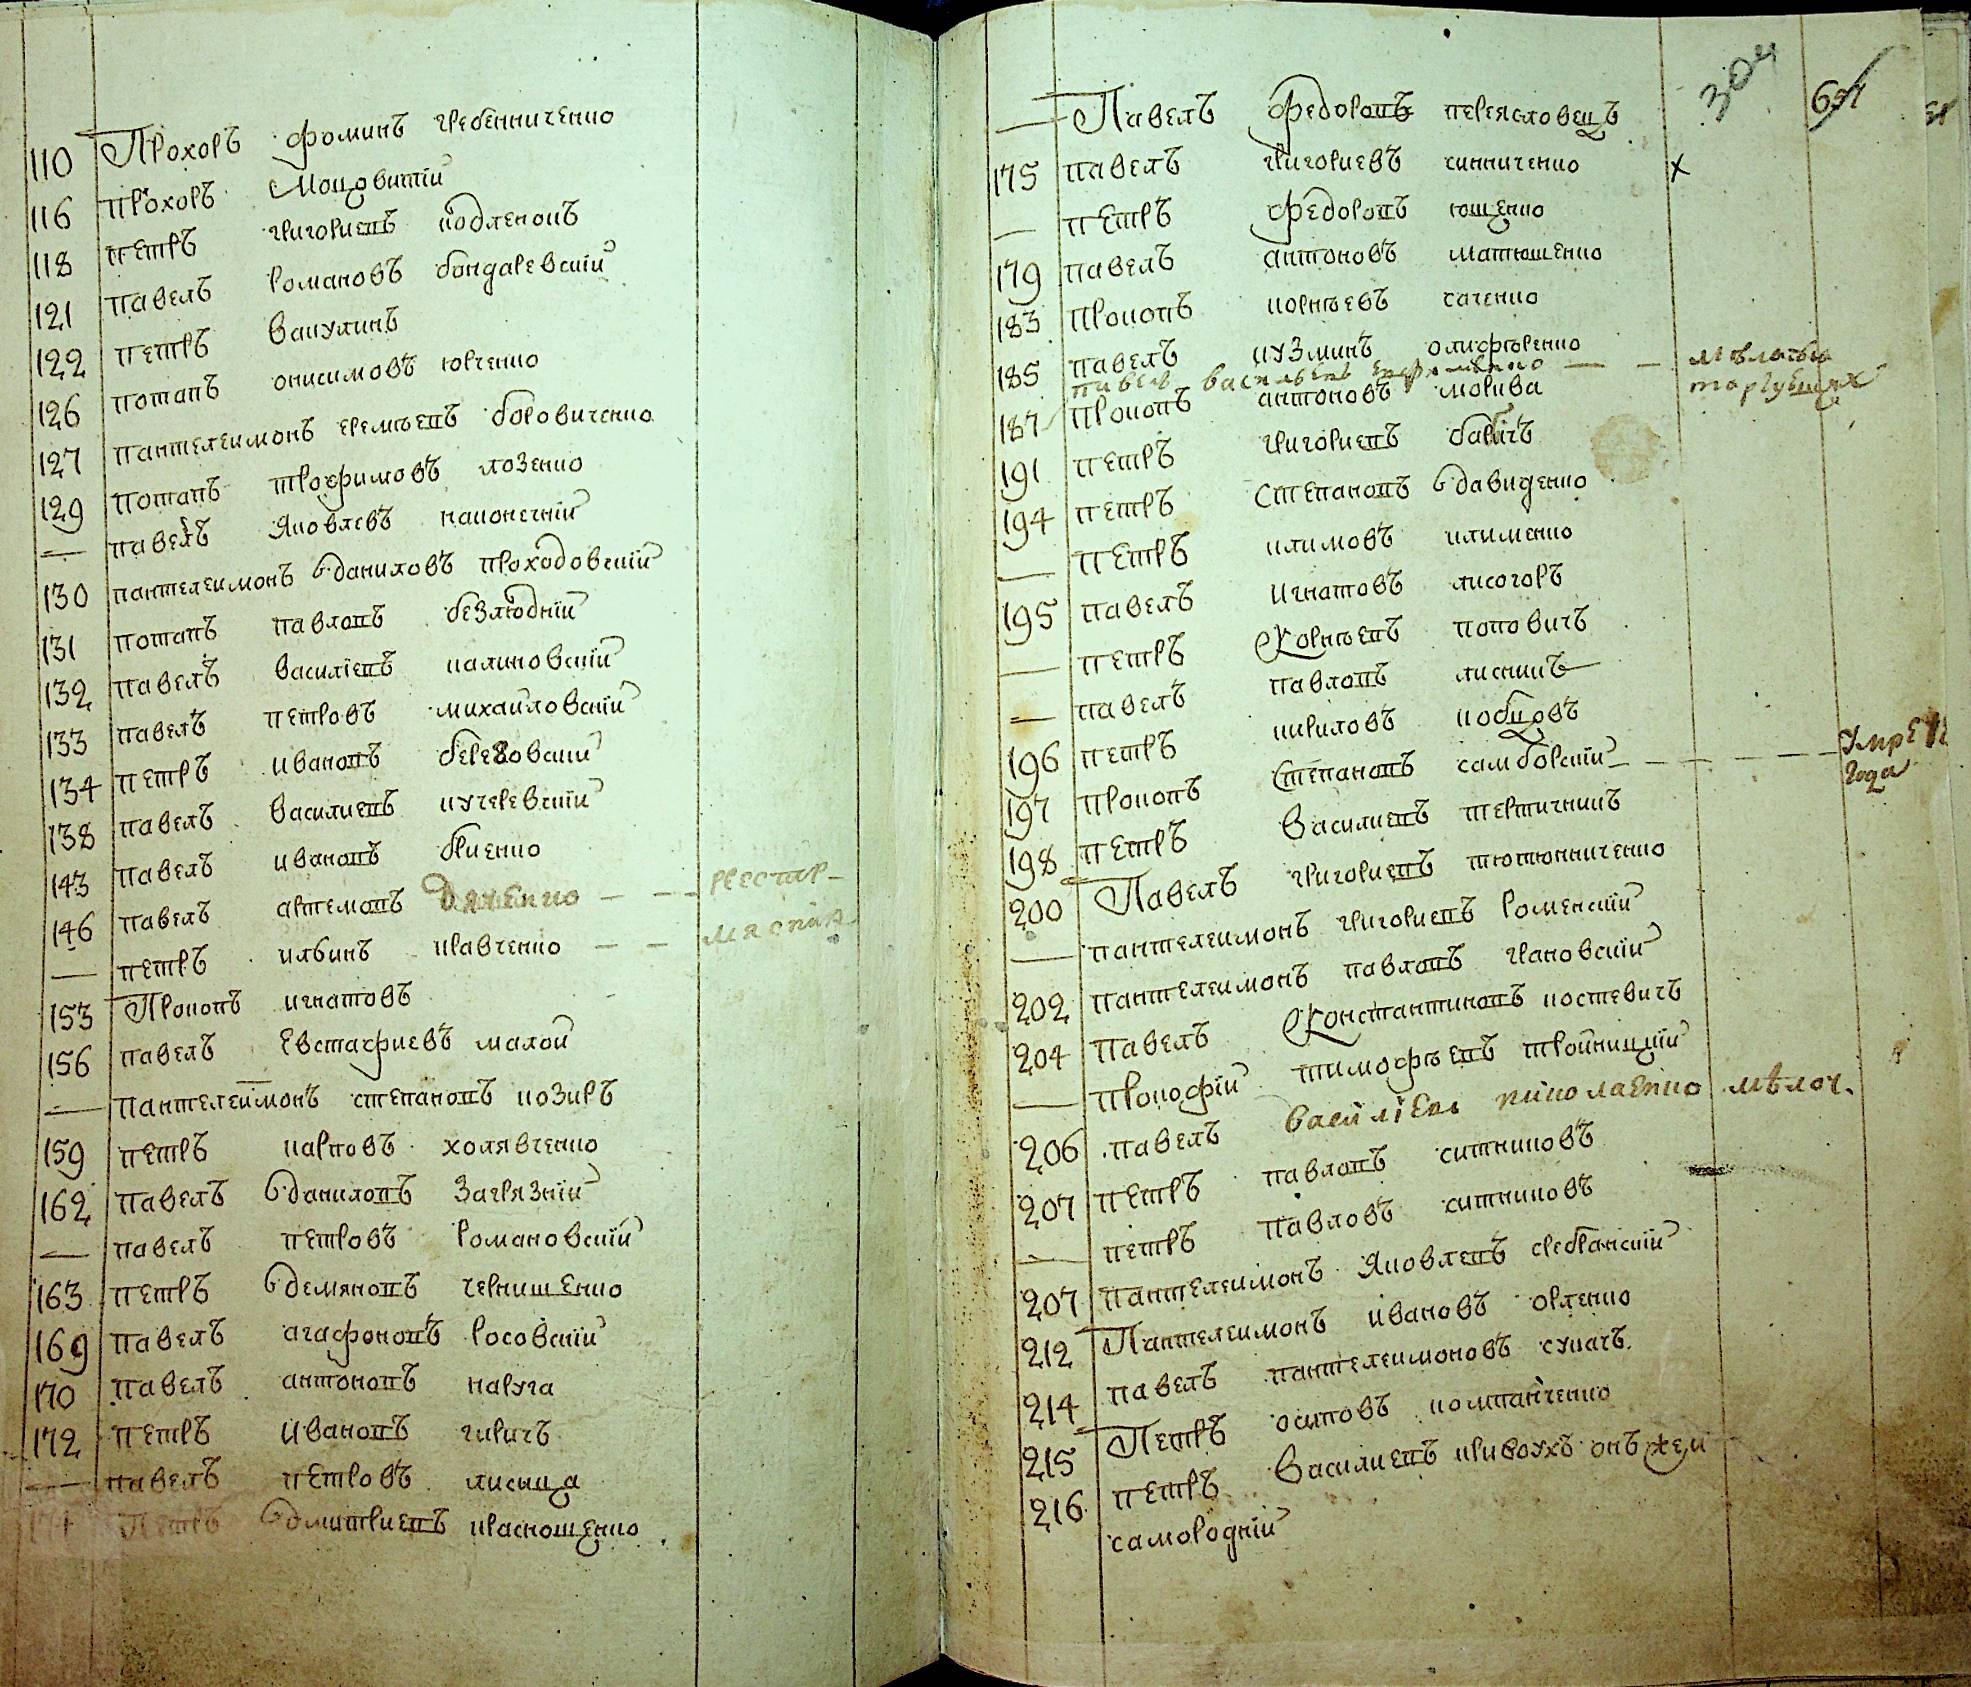 110 Прохоръ фоминъ гребенниченко
116 прохоръ Моцовитій
118 петръ григориевъ кодленокъ
121 павелъ романовъ бондаревскій
122 петръ вакулинъ
126 потапъ онисимовъ юрченко
127 пантелеимонъ еремѣевъ боровиченко
129 потапъ трофимовъ лозенко
— павелъ Яковлевъ наконечній
130 пантелеимонъ даниловъ проходовскій
131 потапъ павловъ безлюдній
132 павелъ василіевъ калиновскій
133 павелъ петровъ михаиловскій
134 петръ ивановъ березовскій
138 павелъ василиевъ кучеревскій
143 павелъ ивановъ бриенко
146 павелъ артемовъ — —
— петръ илбинъ кравченко — —
153 Прокопъ игнатовъ
156 павелъ Евстафиевъ малой
— пантелеймонъ степановъ козиръ
159 петръ карповъ холявченко
162 павелъ даниловъ загрязній
— павелъ петровъ романовскій
163 петръ демяновъ чернишенко
169 павелъ агафоновъ росовскій
170 павелъ антоновъ каруга
172 петръ Ивановъ чиричъ
— павелъ петровъ лисица
Петръ дмитриевъ краснощенко
304
— Павелъ федоровъ переясловецъ
175 павелъ григориевъ синниченко х
— петръ федоровъ ющенко
179 павелъ антоновъ матюшенко
183 Прокопъ корнѣевъ саченко
185 павелъ кузминъ олифѣренко
павел василіевъ — —
187 Прокопъ антоновъ морква
191 петръ григориевъ
194 петръ Степановъ давиденко
— петръ климовъ клименко
195 павелъ игнатовъ лисогоръ
— петръ Корнѣевъ поповичъ
— павелъ павловъ лисникъ
196 петръ кириловъ кобцовъ
197 прокопъ Степановъ самборскій — — — — умре
года
198 петръ Василиевъ тертичникъ
200 Павелъ григориевъ тютюнниченко
— пантелеимонъ григориевъ роменскій
202 пантелеимонъ павловъ грановскій
204 павелъ Константиновъ костевичъ
— прокофій тимофѣевъ тройницкій
206 павелъ василіевъ николаенко мѣлоч.
207 петръ павловъ ситниковъ
— петръ павловъ ситниковъ
207 пантелеимонъ Яковлевъ сребранскій
212 Пантелеимонъ ивановъ орленко
214 павелъ пантелеимоновъ сукачъ
215 Петръ осиповъ компанченко
216 петръ Василиевъ кривоухъ онъ же и
самородній